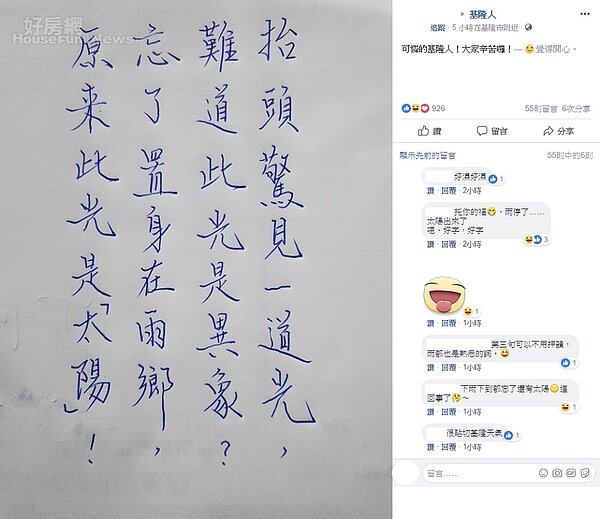 好房網
HouseFun News
抬頭驚見一道光，
難道此光是異象？
忘了置身在雨鄉，
原来此光是「太陽」！
基隆人
追蹤 · 5 小時在基隆市附近 ·
可憐的基隆人！大家辛苦囉！— 😉覺得開心。
926
55則留言 6次分享
讚 留言 分享
顯示先前的留言 55則中的6則
好濕好濕
1
讚 · 回覆 · 2小時
托你的福😁、雨停了……
太陽出來了
嗯、好字，好字
3
讚 · 回覆 · 2小時
1
讚 · 回覆 · 1小時
第三句可以不用押韻，
雨都也是熟悉的詞。😄
1
讚 · 回覆 · 1小時
下雨下到都忘了還有太陽😳這
回事了🤔～
1
讚 · 回覆 · 1小時
很貼切基隆天氣
1
讚 · 回覆 · 1小時
留言……
GIF